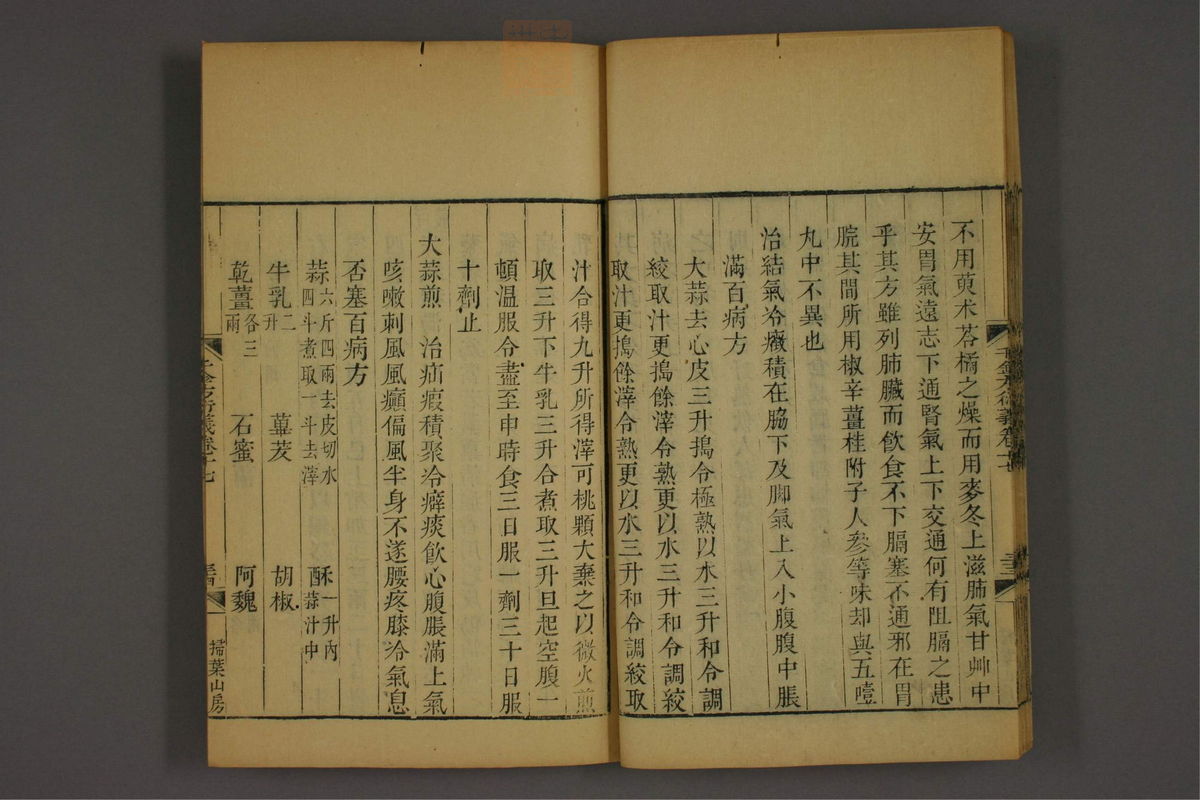 不用萸朮苓橘之燥而用麥冬上滋肺氣甘艸中
安胃氣遠志下通腎氣上下交通何有阻膈之患
乎其方雖列肺臟而飲食不下膈塞不通邪在胃
脘其間所用椒辛薑桂附子人參等味却與五噎
丸中不異也
治結氣冷癥積在脇下及脚氣上入小腹腹中脹
滿百病方
大蒜去心皮三升搗令極熟以水三升和令調
絞取汁更搗餘滓令熟更以水三升和令調絞
取汁更搗餘滓令熟更以水三升和令調絞取
汁合得九升所得滓可桃顆大棄之以微火煎
取三升下牛乳三升合煮取三升旦起空腹一
頓溫服令盡至申時食三日服一劑三十日服
十劑止
大蒜煎 治疝瘕積聚冷癖痰飲心腹脹滿上氣
咳嗽刺風風癲偏風半身不遂腰疼膝冷氣息
否塞百病方
蒜六斤四兩去皮切水四斗煮取一斗去滓 酥一升內蒜汁中
牛乳二升 蓽茇 胡椒
乾薑各三兩 石蜜 阿魏
千金方衍義卷十七 三四 掃葉山房